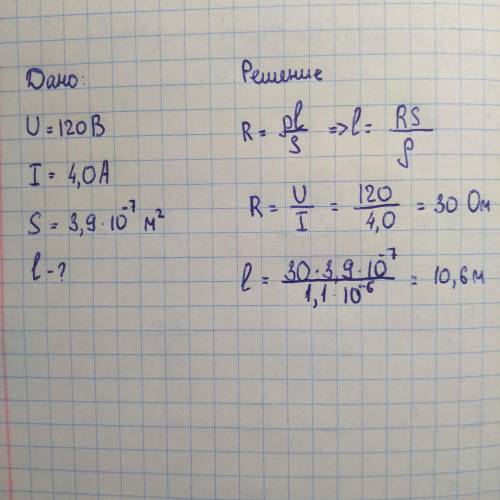 Дано:
U = 120 В
I = 4,0 А
S = 3,9 · 10⁻⁷ м²
l - ?
Решение
R = ρl/S => l = RS/ρ
R = U/I = 120/4,0 = 30 Ом
l = 30 · 3,9 · 10⁻⁷/1,1 · 10⁻⁶ = 10,6 м